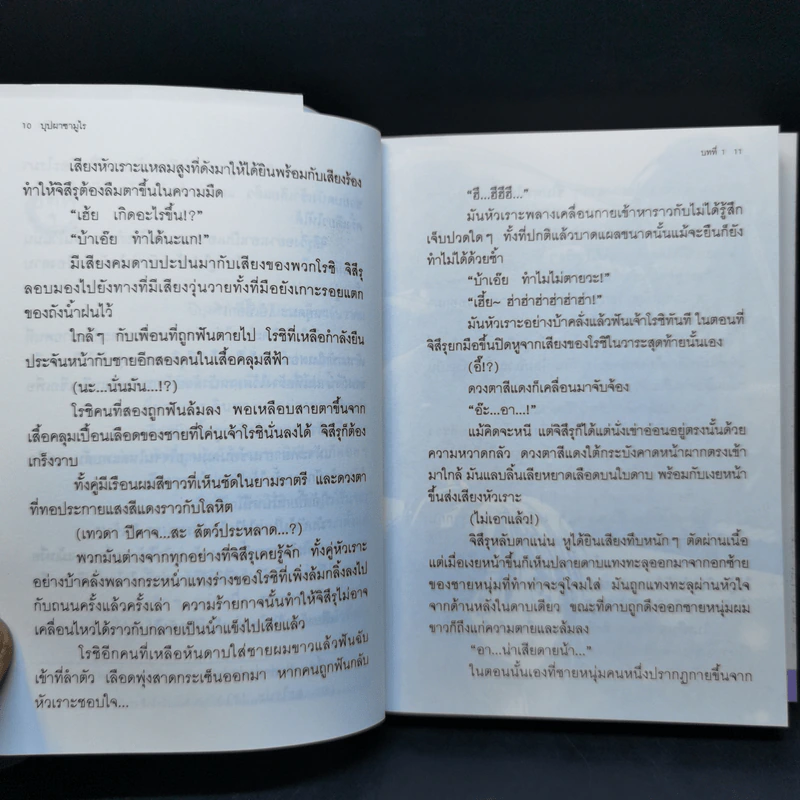 10 บุปผาซามูไร
เสียงหัวเราะแหลมสูงที่ดังมาให้ได้ยินพร้อมกับเสียงร้อง
ทำให้จิสึรุต้องลืมตาขึ้นในความมืด
“เฮ้ย เกิดอะไรขึ้น!?”
“บ้าเอ๊ย ทำได้นะแก!”
มีเสียงคมดาบปะปนมากับเสียงของพวกโรชิ จิสึรุ
ลอบมองไปยังทางที่มีเสียงวุ่นวายทั้งที่มือยังเกาะรอยแตก
ของถังน้ำฝนไว้
ใกล้ๆ กับเพื่อนที่ถูกฟันตายไป โรชิที่เหลือกำลังยืน
ประจันหน้ากับชายอีกสองคนในเสื้อคลุมสีฟ้า
(นะ...นั่นมัน...!?)
โรชิคนที่สองถูกฟันล้มลง พอเหลือบสายตาขึ้นจาก
เสื้อคลุมเปื้อนเลือดของชายที่โค่นเจ้าโรชินั่นลงได้ จิสึรุก็ต้อง
เกร็งวาบ
ทั้งคู่มีเรือนผมสีขาวที่เห็นชัดในยามราตรี และดวงตา
ที่ทอประกายแสงสีแดงราวกับโลหิต
(เทวดา ปีศาจ...สะ สัตว์ประหลาด...?)
พวกมันต่างจากทุกอย่างที่จิสึรุเคยรู้จัก ทั้งคู่หัวเราะ
อย่างบ้าคลั่งพลางกระหน่ำแทงร่างของโรชิที่เพิ่งล้มกลิ้งลงไป
กับถนนครั้งแล้วครั้งเล่า ความร้ายกาจนั้นทำให้จิสึรุไม่อาจ
เคลื่อนไหวได้ราวกับกลายเป็นน้ำแข็งไปเสียแล้ว
โรชิอีกคนที่เหลือหันดาบใส่ชายผมขาวแล้วฟันฉับ
เข้าที่ลำตัว เลือดพุ่งสาดกระเซ็นออกมา หากคนถูกฟันกลับ
หัวเราะชอบใจ...
บทที่ 1 11
“ฮี...ฮีฮีฮี...”
มันหัวเราะพลางเคลื่อนกายเข้าหาราวกับไม่ได้รู้สึก
เจ็บปวดใดๆ ทั้งที่ปกติแล้วบาดแผลขนาดนั้นแม้จะยืนก็ยัง
ทำไม่ได้ด้วยซ้ำ
“บ้าเอ๊ย ทำไมไม่ตายวะ!”
“เฮี้ย~ ฮ่าฮ่าฮ่าฮ่าฮ่าฮ่า!”
มันหัวเราะอย่างบ้าคลั่งแล้วฟันเจ้าโรชิทันที ในตอนที่
จิสึรุยกมือขึ้นปิดหูจากเสียงของโรชิในวาระสุดท้ายนั้นเอง
(อี๊!?)
ดวงตาสีแดงก็เคลื่อนมาจับจ้อง
“อ๊ะ...อา...!”
แม้คิดจะหนี แต่จิสึรุก็ได้แต่นั่งเข่าอ่อนอยู่ตรงนั้นด้วย
ความหวาดกลัว ดวงตาสีแดงใต้กระบังคาดหน้าผากตรงเข้า
มาใกล้ มันแลบลิ้นเลียหยาดเลือดบนใบดาบ พร้อมกับเงยหน้า
ขึ้นส่งเสียงหัวเราะ
(ไม่เอาแล้ว!)
จิสึรุหลับตาแน่น หูได้ยินเสียงทึบหนักๆ ตัดผ่านเนื้อ
แต่เมื่อเงยหน้าขึ้นก็เห็นปลายดาบแทงทะลุออกมาจากอกซ้าย
ของชายหนุ่มที่ทำท่าจะจู่โจมใส่ มันถูกแทงทะลุผ่านหัวใจ
จากด้านหลังในดาบเดียว ขณะที่ดาบถูกดึงออกชายหนุ่มผม
ขาวก็ถึงแก่ความตายและล้มลง
“อา...น่าเสียดายน้า...”
ในตอนนั้นเองที่ชายหนุ่มคนหนึ่งปรากฏกายขึ้นจาก